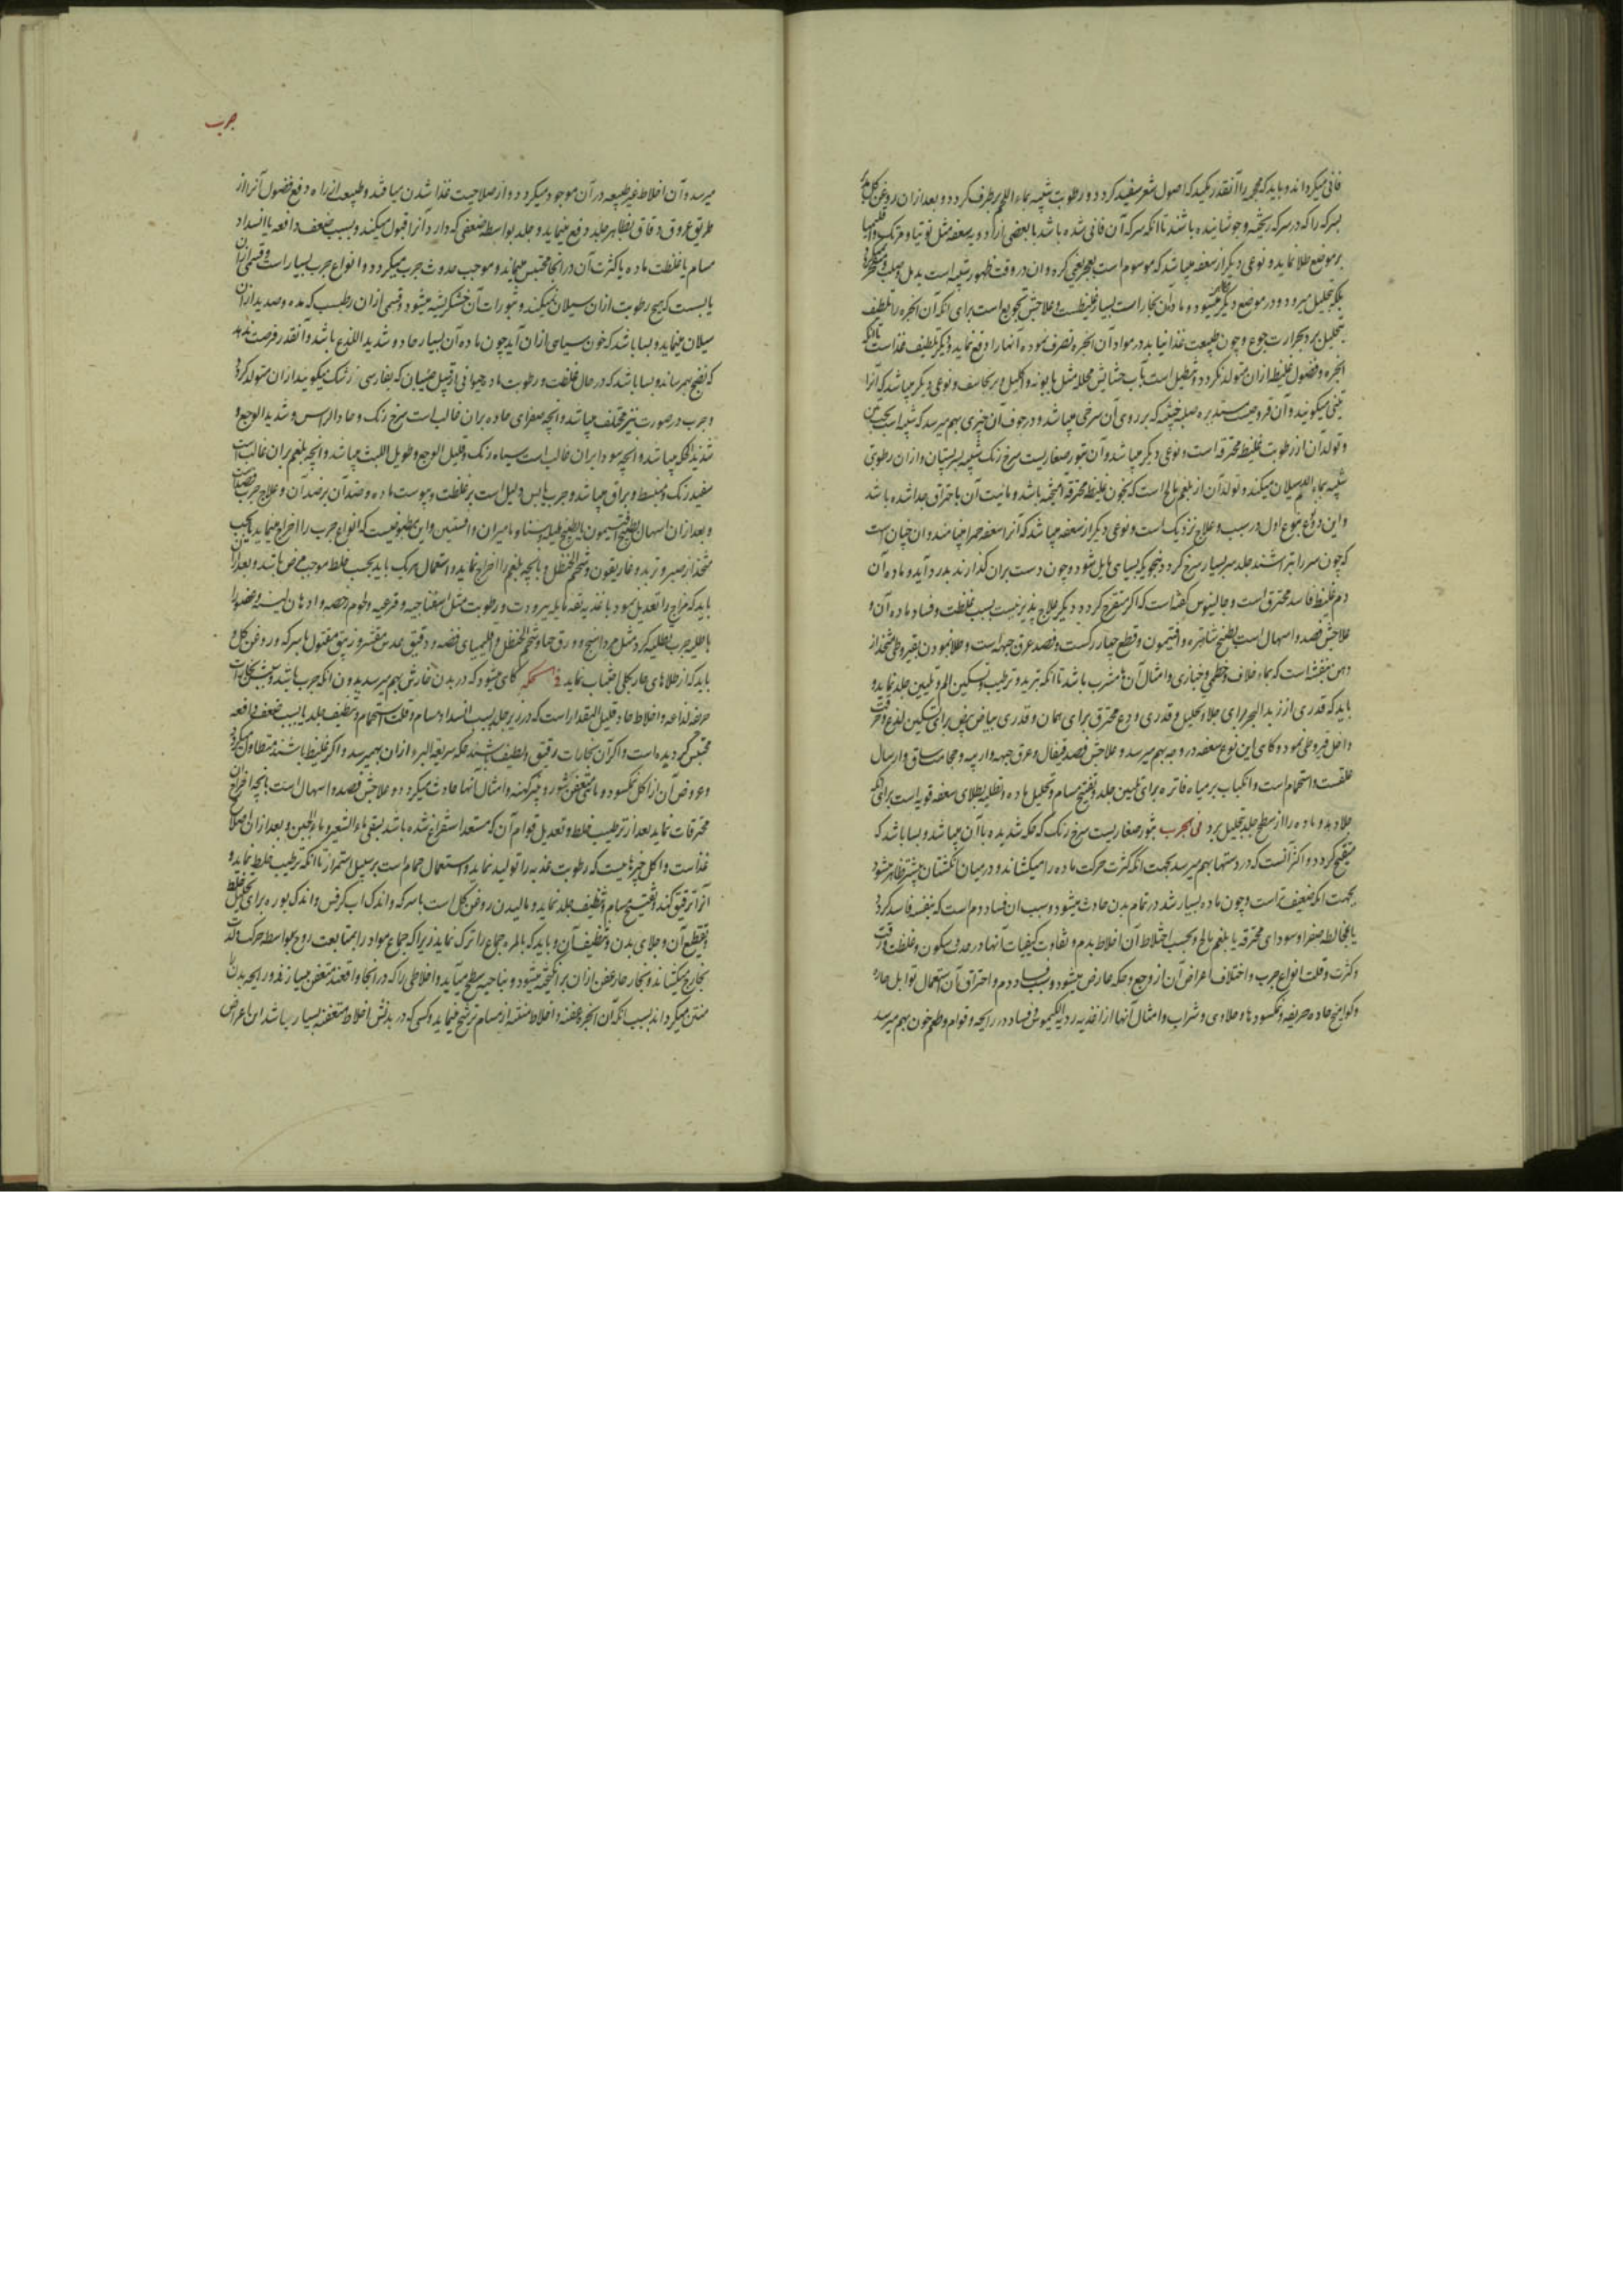 فانی میکرداند و باید که مجمر را آنقدر بمکید که اصول شعر سفید کردد و رطوبت شبیه بماء اللحم برطرف کردد و بعد ازان روغن کل
بسرکه را که در سرکه ریخته و جوشانیده باشند تا انکه سرکه آن فانی شده باشد با بعضی از ادویه سعفه مثل توتیا و مرتک
بر موضع طلا نماید و نوعی دیکر از سعفه میباشد که موسوم است یعنی کره و ان در وقت ظهور شبیه است بدمل صلب
بلکه بتحلیل میرود و در موضع دیکر میشود و ماده آن بخار است بسیار غلیظ و علاجش تجویع است برای انکه آن ابخره را تلطیف
بتحلیل برد بحرارت جوع و چون طبیعت غذا نیابد در مواد آن ابخره تصرف نموده آنها را دفع نماید و دیکر تلطیف غذا است تا انکه
ابخره و فضول غلیظ ازان متولد نکردد و تنطیل است بآب حشایش محلله مثل بابونه و اکلیل و برنجاسف و نوعی دیکر میباشد که آنرا
تینی میکویند و آن قروحیست مستدیره صلبه که بر روی آن سرخی میباشد و در جوف آن چیزی بهم میرسد که شبیه است بحب تین
و تولد آن از رطوبت غلیظ محترقه است و نوعی دیکر میباشد و آن بثور صغاریست سرخ رنک شبیه بسر پستان و ازان رطوبتی
شبیه بماء اللحم سیلان میکند و تولد آن از بلغم مالح است که بخون غلیظ محترقه آمیخته باشد و مائیت آن باحتراق جدا شده باشد
و این دو نوع بنوع اول در سبب و علاج نزدیک است و نوعی دیکر از سعفه میباشد که آنرا سعفه حمرا مینامند و ان چنان است
که چون سر را بتراشند جلد سر بسیار سرخ کردد بنحویکه بسیاهی مایل شود و چون دست بران کذارند بدرد آید و ماده آن
دم غلیظ فاسد محترق است و جالینوس کفته است که اکر متقرح کردد دیکر علاج پذیر نیست بسبب غلظت و فساد ماده آن و
علاجش فصد و اسهال است بطبیخ شاهتره و افتیمون و قطع چهار رکست و فصد عرق جبهه است و طلا نمودن بقیروطی متخذ از
دهن بنفشه است که بماء خلاف و خطمی و خبازی و امثال آن مشرب باشد تا انکه تبرید و ترطیب و تسکین الم و تلیین جلد نماید و
باید که قدری از زبد البحر برای جلا و تحلیل و قدری ودع محترق برای همان و قدری بیاض بیض برای تسکین لذع و حرقت
داخل قیروطی نمود و کاهی این نوع سعفه در وجه بهم میرسد و علاجش فصد قیفال و عرق جبهه و ارنبه و حجامت ساق و ارسال
علقست و استحمام است و انکباب بر میاه فاتره برای تلیین جلد و تفتیح مسام و تحلیل ماده و تطلیه بطلای سعفه قویه است برای انکه
جلا دهد و ماده را از سطح جلد بتحلیل برد فی الجرب بثور صغاریست سرخ رنک که حکه شدیده با آن میباشد و بسا باشد که
متقیح کردد و اکثر آنست که در دستها بهم میرسد بجهت انکه کثرت حرکت ماده را میکشاند و در میان انکشتان بیشتر ظاهر میشود
بجهت انکه ضعیف تر است و چون ماده بسیار شد در تمام بدن حادث میشود و سبب ان فساد دم است که بنفسه فاسد کردد
یا مخالطه صفرا و سودای محترقه یا بلغم مالح و بحسب اختلاط آن اخلاط بدم و تفاوت کیفیات آنها در حدت و سکون و غلظت و رقت
و کثرت و قلت انواع جرب و اختلاف اعراض آن از وجع و حکه عارض میشود و سبب فساد دم و احتراق آن استعمال توابل حاره
و کوامیخ حاده حریفه و نمکسود ها و حلاوی و شراب و امثال آنها از اغذیه ردیه الکیموس فساد در رایحه و قوام و طعم خون بهم میرسد
جرب
میرسد و آن اخلاط غیر طبیعه در آن موجود میکردد و از صلاحیت غذا شدن میافتد و طبیعه از راه دفع فضول آنرا از
طریق عروق دقاق بظاهر جلد دفع مینماید و جلد بواسطه ضعفی که دارد آنرا قبول میکند و بسبب ضعف دافعه یا انسداد
مسام یا غلظت ماده یا کثرت آن در انجا محتبس میماند و موجب حدوث جرب میکردد و انواع جرب بسیار است و قسمی ازان
یابست که هیچ رطوبت ازان سیلان نمیکند و بثورات آن خشکریشه میشود و قسمی ازان رطبست که مده و صدید ازان
سیلان مینماید و بسا باشد که خون سیاهی ازان آید چون ماده آن بسیار حاد و شدید اللذع باشد و آنقدر فرصت ندهد
که نضج بهم رساند و بسا باشد که در حال غلظت و رطوبت ماده حیوانی از قبیل صیبان که بفارسی رشک میکویند ازان متولد کردد
و جرب در صورت نیز مختلف میباشد و آنچه صفرای حاده بران غالب است سرخ رنک و حاد الراس و شدید الوجع و
شدید الحکه میباشد و انچه سودا بران غالب است سیاه رنک و قلیل الوجع و طویل اللبث میباشد و انچه بلغم بران غالب است
سفید رنک و منبسط و براق میباشد و جرب یابس دلیل است بر غلظت و یبوست ماده و ضد آن بر ضد آن و علاج جرب فصد است
و بعد ازان اسهال بطبیخ افتیمون یا بطبیخ هلیله و سنا و مامیران و افسنتین و این مطبوخیست که انواع جرب را اخراج مینماید یا بحب
متخذ از صبر و تربد و غاریقون و شحم الحنظل و بانچه بلغم را اخراج نماید و استعمال هریک باید بحسب خلط موجب مرض باشد و بعد ازان
باید که مزاج را تعدیل نمود باغذیه تفه مایله ببرودت و رطوبت مثل اسفناجیه و قرعیه و لحوم رخصه و ادهان لینه و عضو را
باطلیه جرب تطلیه کرد مثل مردارسنج و ورق حنا و شحم الحنظل و اقلیمیای فضه و دقیق عدس مقشر و زیبق مقتول با سرکه و روغن کل و
باید که از طلاهای حار بکلی اجتناب نماید فی الحکه کاهی میشود که در بدن خارش بهم میرسد بدون انکه جرب باشد
حریفه لذاعه و اخلاط حاد قلیل المقدار است که در زیر جلد بسبب انسداد مسام و قلت استحمام و تنظیف جلد یا بسبب ضعف دافعه
محتبس کردیده است و اکر آن بخارات رقیق و لطیف باشند حکه سریعة البرء ازان بهم میرسد و اکر غلیظ باشند متطاول میکردد
و عروض آن از اکل نمکسود و ماهی متعفن شور و پنیر کهنه و امثال آنها حادث میکردد و علاجش فصد و اسهال است بانچه اخراج
محترقات نماید بعد از ترطیب خلط و تعدیل قوام آن که مستعد استفراغ شده باشد بسقی ماء الشعیر و ماء الجبن و بعد ازان اصلاح
غذاست و اکل چیزهائیست که رطوبت عذبه را تولید نماید و استعمال حمام است بر سبیل استمرار تا انکه ترطیب خلط نماید و
آنرا ترقیق کند و تفتیح مسام و تنظیف جلد نماید و مالیدن روغن کل است با سرکه و اندک اب کرفس و اندک بوره برای تحلیل خلط
و تقطیع آن و جلای بدن و تنظیف آن و باید که بالمره جماع را ترک نماید زیرا که جماع مواد را بمتابعت روح بواسطه حرکت و لذت
بخارج میکشاند و بخار حار عفن ازان برانکیخته میشود و بناحیه سطح میآید و اخلاطی را که در انجا واقعند متعفن میسازد و رایحه بدن را
منتن میکرداند بسبب انکه آن ابخره عفنه و اخلاط منتنه از مسام ترشح مینماید و کسی که در بدنش اخلاط متعفنه بسیار باشد این اعراض